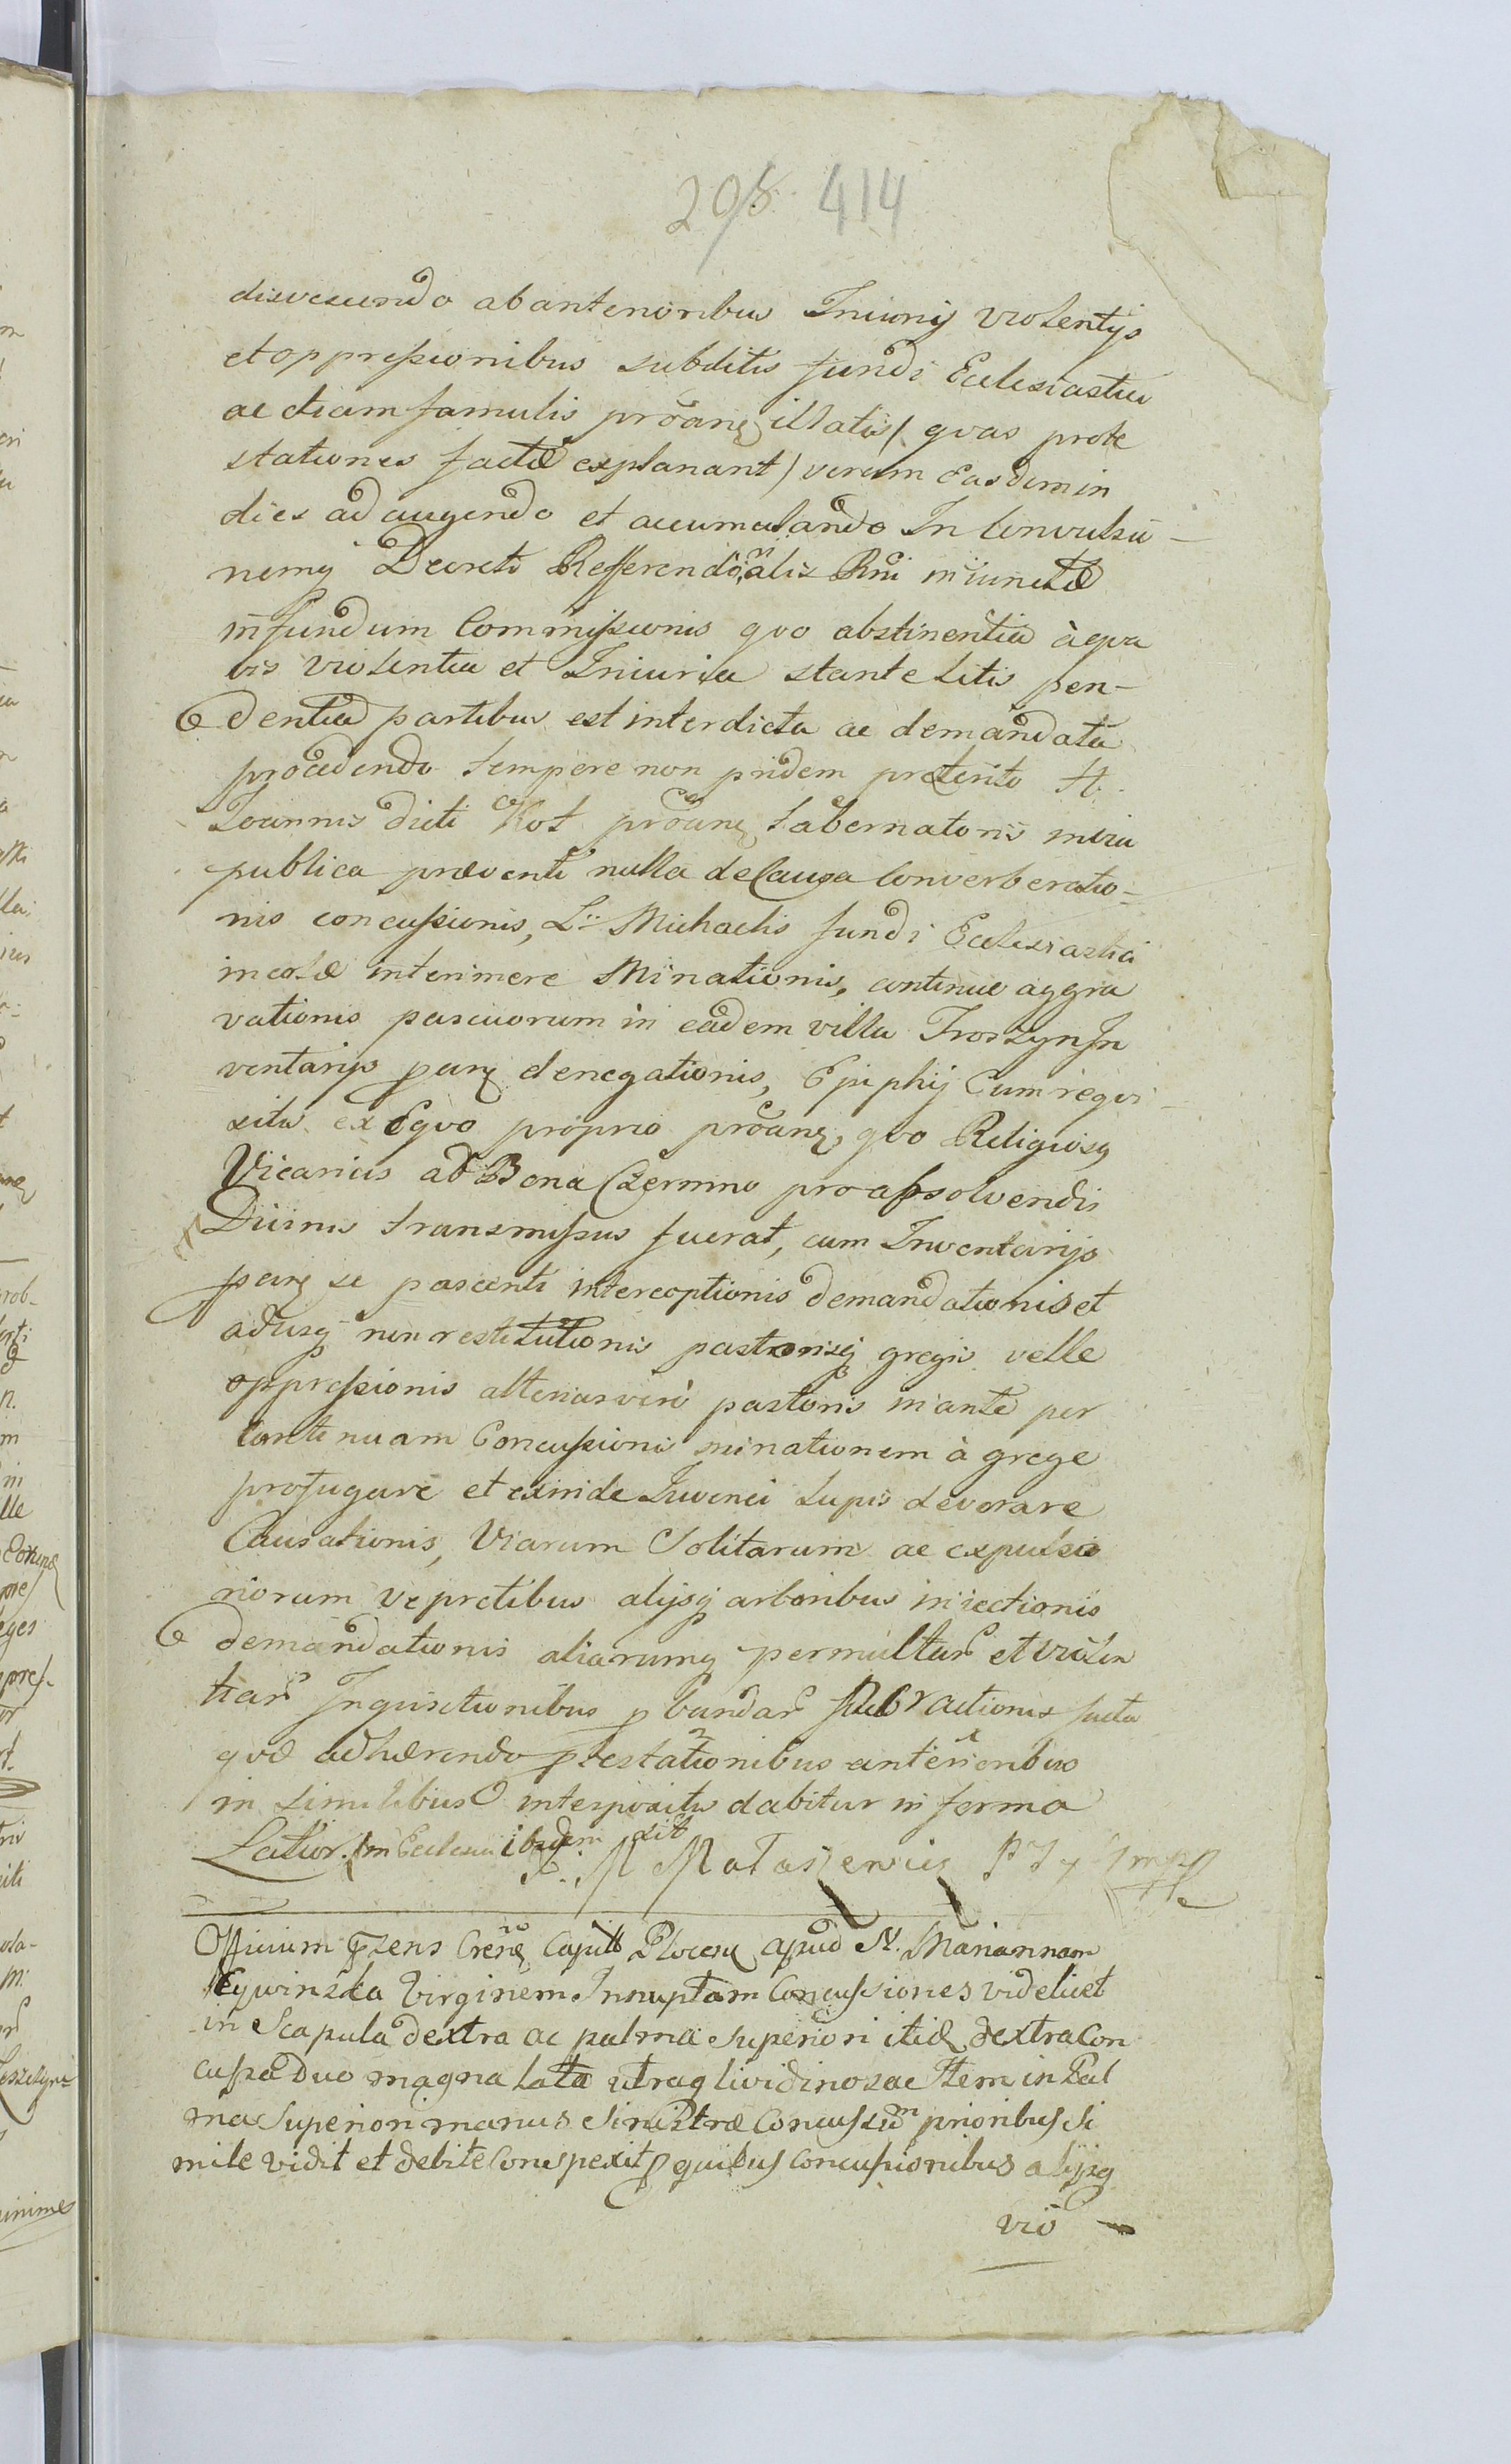 208 414
discescendo ab anterioribus Iniurijs violentijs
et oppressionibus subditis fundi Ecclesiastici
ac etiam famulis prõanẽ illatis / qvas prote
stationes factæ explanant / verum Easdem in
dies adaugendo et accumulando In Convulsio-
nemq Decreti Refferendõalis Rni iniunctæ
in fundum Commissionis qvo abstinentia à qva
vis violentia et Iniuria stante litis pen-
dentia partibus est interdicta ac demandata
procedendo tempore non pridem præterito H.
Ioannis dicti Kot prõanẽ tabernatoris in via
publica præventi nulla de Causa Converberatio-
nis concussionis, L: Michaelis fundi Ecclesiastici
incolæ interimere Minationis, continuæ aggra
vationis pascuorum in eadem villa Troszyn In
ventarijs parẽ denegationis, Epiphij Cum reqvi-
situ ex Eqvo proprio prõanẽ, qvo Religiosq
Vicarius ad Bona Czernino pro absolvendis
Divinis transmissus fuerat, cum Inventarijs
parẽ se pascenti interceptionis demandationis et
adusq non restitutionis pastorisq gregis velle
oppressionis alterius vero pastoris in ante per
Continuam Concussionis minationem à grege
profugare et exinde Iuvenci lupis devorare
Causationis, Viarum Solitarum ac expulsio
riorum vepretibus alijsq arboribus iniectionis
demandationis aliarumq permultar et violen
tiar Inqvisitionibus pbandar actionis facta
qvæ adhærendo ptestationibus anterioribus
in similibus interpositis dabitur in forma
Latior. In Ecclesia ibidem sit
M Mataszewicz mpp
Officium psens Crenẽ Capitl Plocen apud N. Mariannam
Virginem Innuptam Concussiones videlicet
in Scapula dextra ac palma superiori itid dextra Con
cussa duo magna lata utraq lividinosa Item in Pal
ma Superiori manus Sinistræ Concussum prioribus si
mile vidit et debite Conspexit p quibus Concussionibus alijsq
vio